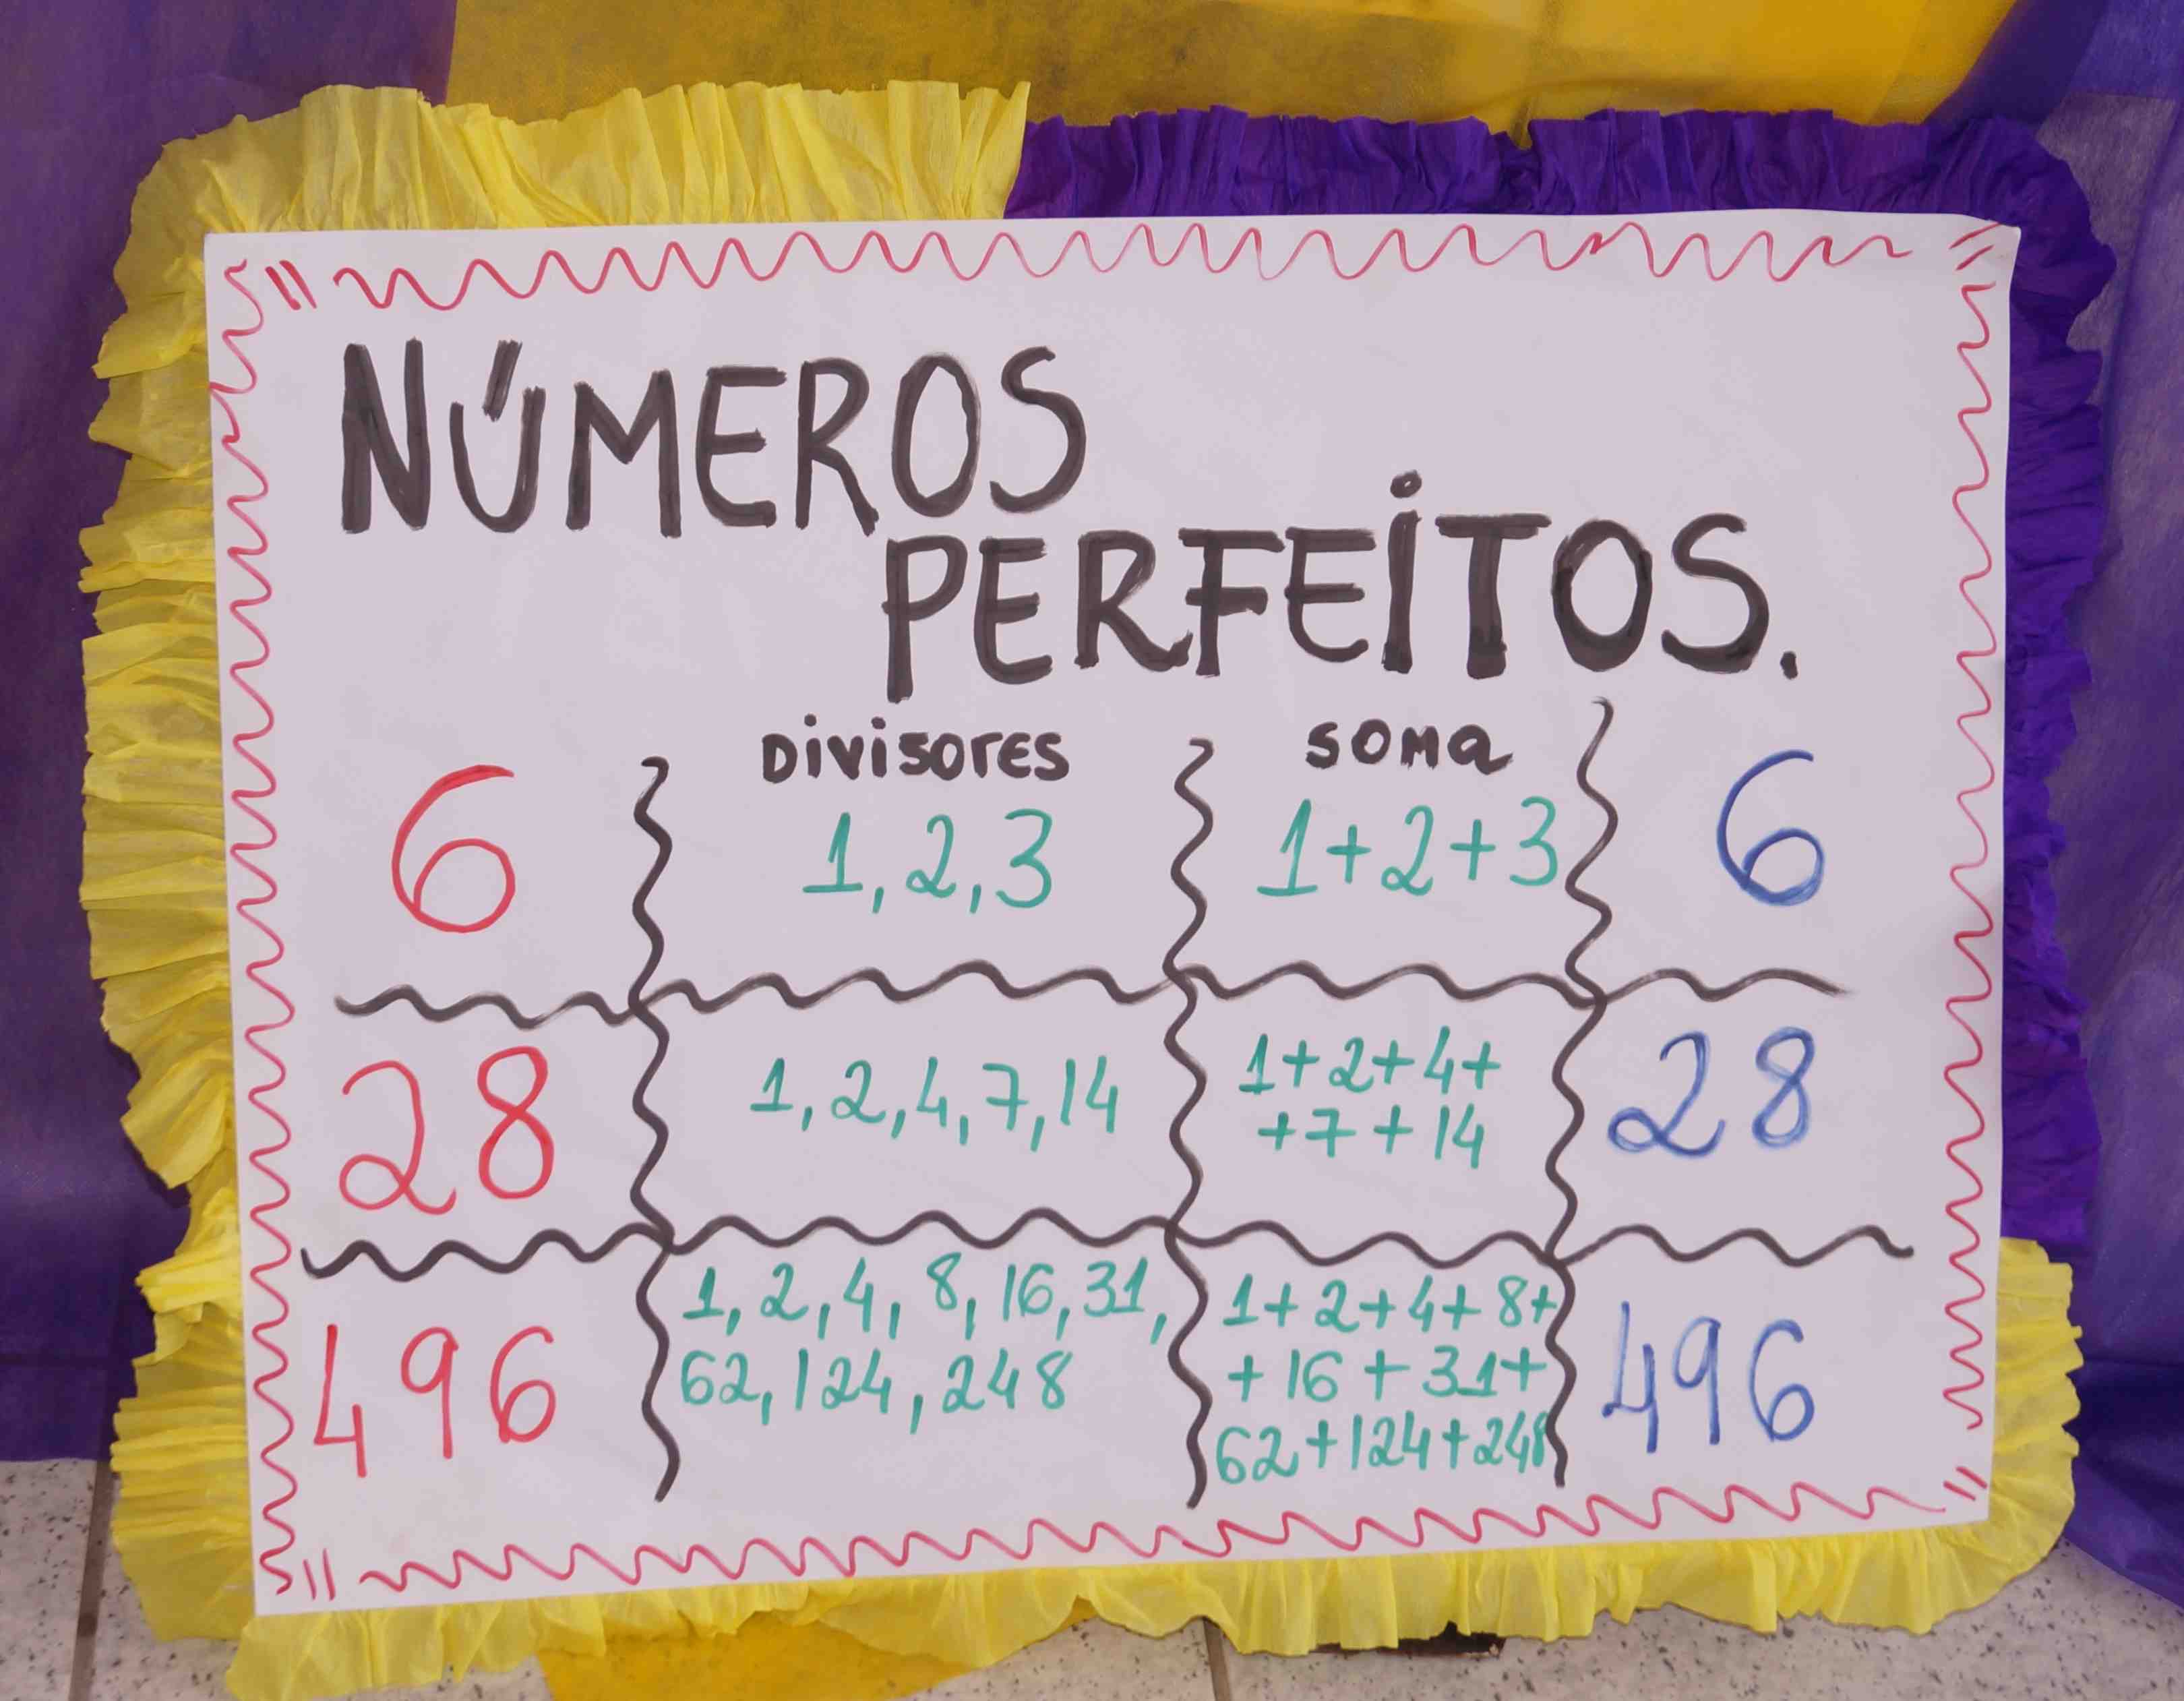 NÚMEROS
PERFEITOS.
Divisores soma
6 1, 2, 3 1+2+3 6
28 1, 2, 4, 7, 14 1+2+4+
+7+14 28
496 1, 2, 4, 8, 16, 31,
62, 124, 248 1+2+4+8+
+16+31+
62+124+248 496